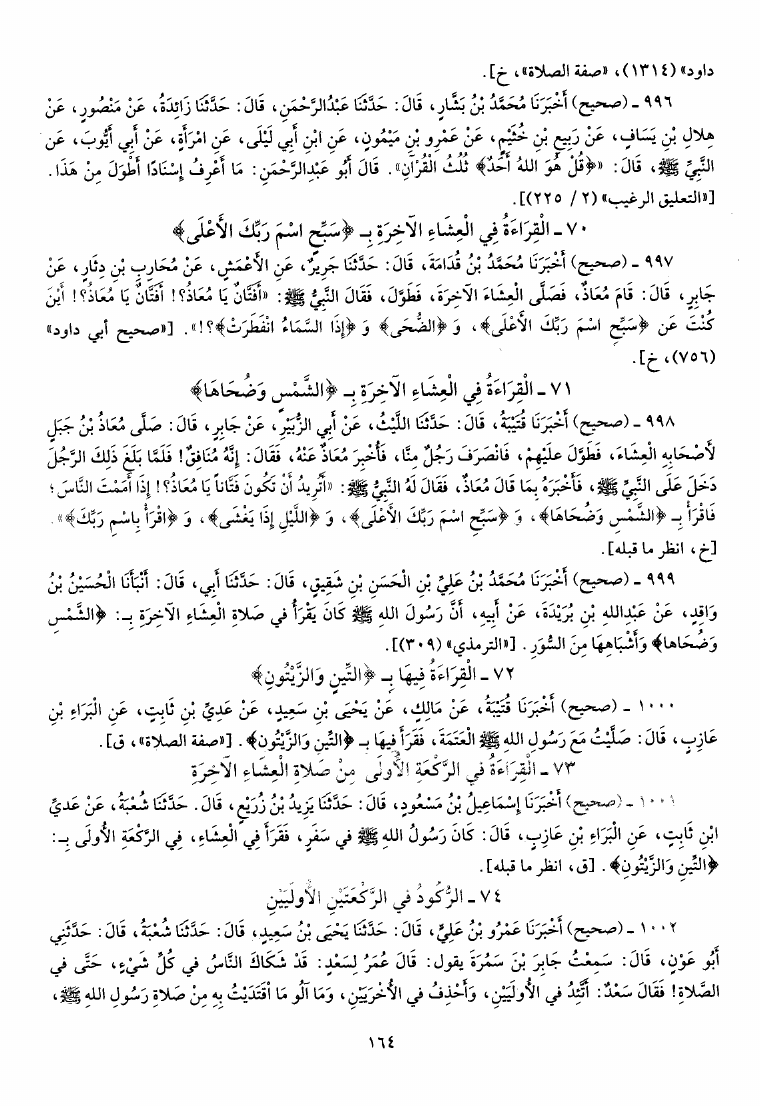 داود» (١٣١٤)، «صفة الصلاة»، خ].
٩٩٦ ـ (صحيح) أَخْبَرَنَا مُحَمَّدُ بْنُ بَشَّارٍ، قَالَ: حَدَّثَنَا عَبْدُالرَّحْمَنِ، قَالَ: حَدَّثَنَا زَائِدَةُ، عَنْ مَنْصُورٍ، عَنْ
هِلَالِ بْنِ يَسَافٍ، عَنْ رَبِيعِ بْنِ خُثَيْمٍ، عَنْ عَمْرِو بْنِ مَيْمُونٍ، عَنِ ابْنِ أَبِي لَيْلَى، عَنِ امْرَأَةٍ، عَنْ أَبِي أَيُّوبَ، عَنِ
النَّبِيِّ ﷺ، قَالَ: «﴿قُلْ هُوَ اللهُ أَحَدٌ﴾ ثُلُثُ الْقُرْآنِ». قَالَ أَبُو عَبْدِالرَّحْمَنِ: مَا أَعْرِفُ إِسْنَادًا أَطْوَلَ مِنْ هَذَا.
[«التعليق الرغيب» (٢ / ٢٢٥)].
٧٠ ـ الْقِرَاءَةُ فِي الْعِشَاءِ الآخِرَةِ بِـ ﴿سَبِّحِ اسْمَ رَبِّكَ الأَعْلَى﴾
٩٩٧ ـ (صحيح) أَخْبَرَنَا مُحَمَّدُ بْنُ قُدَامَةَ، قَالَ: حَدَّثَنَا جَرِيرٌ، عَنِ الأَعْمَشِ، عَنْ مُحَارِبِ بْنِ دِثَارٍ، عَنْ
جَابِرٍ، قَالَ: قَامَ مُعَاذٌ، فَصَلَّى الْعِشَاءَ الآخِرَةَ، فَطَوَّلَ، فَقَالَ النَّبِيُّ ﷺ: «أَفَتَّانٌ يَا مُعَاذُ؟! أَفَتَّانٌ يَا مُعَاذُ؟! أَيْنَ
كُنْتَ عَنِ ﴿سَبِّحِ اسْمَ رَبِّكَ الأَعْلَى﴾، وَ ﴿الضُّحَى﴾ وَ ﴿إِذَا السَّمَاءُ انْفَطَرَتْ﴾؟!». [«صحيح أبي داود»
(٧٥٦)، خ].
٧١ ـ الْقِرَاءَةُ فِي الْعِشَاءِ الآخِرَةِ بِـ ﴿الشَّمْسِ وَضُحَاهَا﴾
٩٩٨ ـ (صحيح) أَخْبَرَنَا قُتَيْبَةُ، قَالَ: حَدَّثَنَا اللَّيْثُ، عَنْ أَبِي الزُّبَيْرِ، عَنْ جَابِرٍ، قَالَ: صَلَّى مُعَاذُ بْنُ جَبَلٍ
لأَصْحَابِهِ الْعِشَاءَ، فَطَوَّلَ عَلَيْهِمْ، فَانْصَرَفَ رَجُلٌ مِنَّا، فَأُخْبِرَ مُعَاذٌ عَنْهُ، فَقَالَ: إِنَّهُ مُنَافِقٌ! فَلَمَّا بَلَغَ ذَلِكَ الرَّجُلَ
دَخَلَ عَلَى النَّبِيِّ ﷺ، فَأَخْبَرَهُ بِمَا قَالَ مُعَاذٌ، فَقَالَ لَهُ النَّبِيُّ ﷺ: «أَتُرِيدُ أَنْ تَكُونَ فَتَّانًا يَا مُعَاذُ؟! إِذَا أَمَمْتَ النَّاسَ؛
فَاقْرَأْ بِـ ﴿الشَّمْسِ وَضُحَاهَا﴾، وَ ﴿سَبِّحِ اسْمَ رَبِّكَ الأَعْلَى﴾، وَ ﴿اللَّيْلِ إِذَا يَغْشَى﴾، وَ ﴿اقْرَأْ بِاسْمِ رَبِّكَ﴾».
[خ، انظر ما قبله].
٩٩٩ ـ (صحيح) أَخْبَرَنَا مُحَمَّدُ بْنُ عَلِيِّ بْنِ الْحَسَنِ بْنِ شَقِيقٍ، قَالَ: حَدَّثَنَا أَبِي، قَالَ: أَنْبَأَنَا الْحُسَيْنُ بْنُ
وَاقِدٍ، عَنْ عَبْدِاللهِ بْنِ بُرَيْدَةَ، عَنْ أَبِيهِ، أَنَّ رَسُولَ اللهِ ﷺ كَانَ يَقْرَأُ فِي صَلَاةِ الْعِشَاءِ الآخِرَةِ بِـ: ﴿الشَّمْسِ
وَضُحَاهَا﴾ وَأَشْبَاهِهَا مِنَ السُّوَرِ. [«الترمذي» (٣٠٩)].
٧٢ ـ الْقِرَاءَةُ فِيهَا بِـ ﴿التِّينِ وَالزَّيْتُونِ﴾
١٠٠٠ ـ (صحيح) أَخْبَرَنَا قُتَيْبَةُ، عَنْ مَالِكٍ، عَنْ يَحْيَى بْنِ سَعِيدٍ، عَنْ عَدِيِّ بْنِ ثَابِتٍ، عَنِ الْبَرَاءِ بْنِ
عَازِبٍ، قَالَ: صَلَّيْتُ مَعَ رَسُولِ اللهِ ﷺ الْعَتَمَةَ، فَقَرَأَ فِيهَا بِـ ﴿التِّينِ وَالزَّيْتُونِ﴾. [«صفة الصلاة»، ق].
٧٣ ـ الْقِرَاءَةُ فِي الرَّكْعَةِ الأُولَى مِنْ صَلَاةِ الْعِشَاءِ الآخِرَةِ
١٠٠١ ـ (صحيح) أَخْبَرَنَا إِسْمَاعِيلُ بْنُ مَسْعُودٍ، قَالَ: حَدَّثَنَا يَزِيدُ بْنُ زُرَيْعٍ، قَالَ. حَدَّثَنَا شُعْبَةُ، عَنْ عَدِيِّ
ابْنِ ثَابِتٍ، عَنِ الْبَرَاءِ بْنِ عَازِبٍ، قَالَ: كَانَ رَسُولُ اللهِ ﷺ فِي سَفَرٍ، فَقَرَأَ فِي الْعِشَاءِ، فِي الرَّكْعَةِ الأُولَى بِـ:
﴿التِّينِ وَالزَّيْتُونِ﴾. [ق، انظر ما قبله].
٧٤ ـ الرُّكُودُ فِي الرَّكْعَتَيْنِ الأُولَيَيْنِ
١٠٠٢ ـ (صحيح) أَخْبَرَنَا عَمْرُو بْنُ عَلِيٍّ، قَالَ: حَدَّثَنَا يَحْيَى بْنُ سَعِيدٍ، قَالَ: حَدَّثَنَا شُعْبَةُ، قَالَ: حَدَّثَنِي
أَبُو عَوْنٍ، قَالَ: سَمِعْتُ جَابِرَ بْنَ سَمُرَةَ يقول: قَالَ عُمَرُ لِسَعْدٍ: قَدْ شَكَاكَ النَّاسُ فِي كُلِّ شَيْءٍ، حَتَّى فِي
الصَّلَاةِ! فَقَالَ سَعْدٌ: أَتَّئِدُ فِي الأُولَيَيْنِ، وَأَحْذِفُ فِي الأُخْرَيَيْنِ، وَمَا آلُو مَا اقْتَدَيْتُ بِهِ مِنْ صَلَاةِ رَسُولِ اللهِ ﷺ،
١٦٤